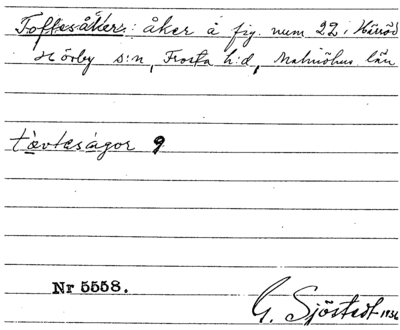 Toftesåker: åker å fig. num 22 i Härröd
Hörby s:n, Frosta h:d, Malmöhus län
tåvtesågor 9
Nr 5558.
G. Sjöstedt 1936